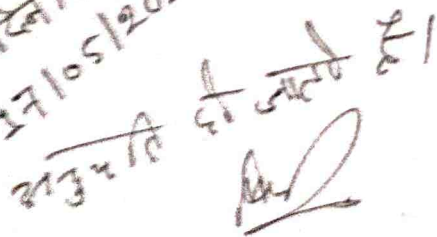 17/05/20
अनुमति दी जाती है।